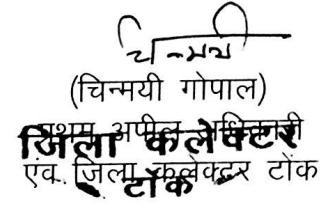 चिन्मयी
(चिन्मयी गोपाल)
प्रथम अपील अधिकारी
जिला कलेक्टर
एंव जिला कलेक्टर टोंक
टोंक